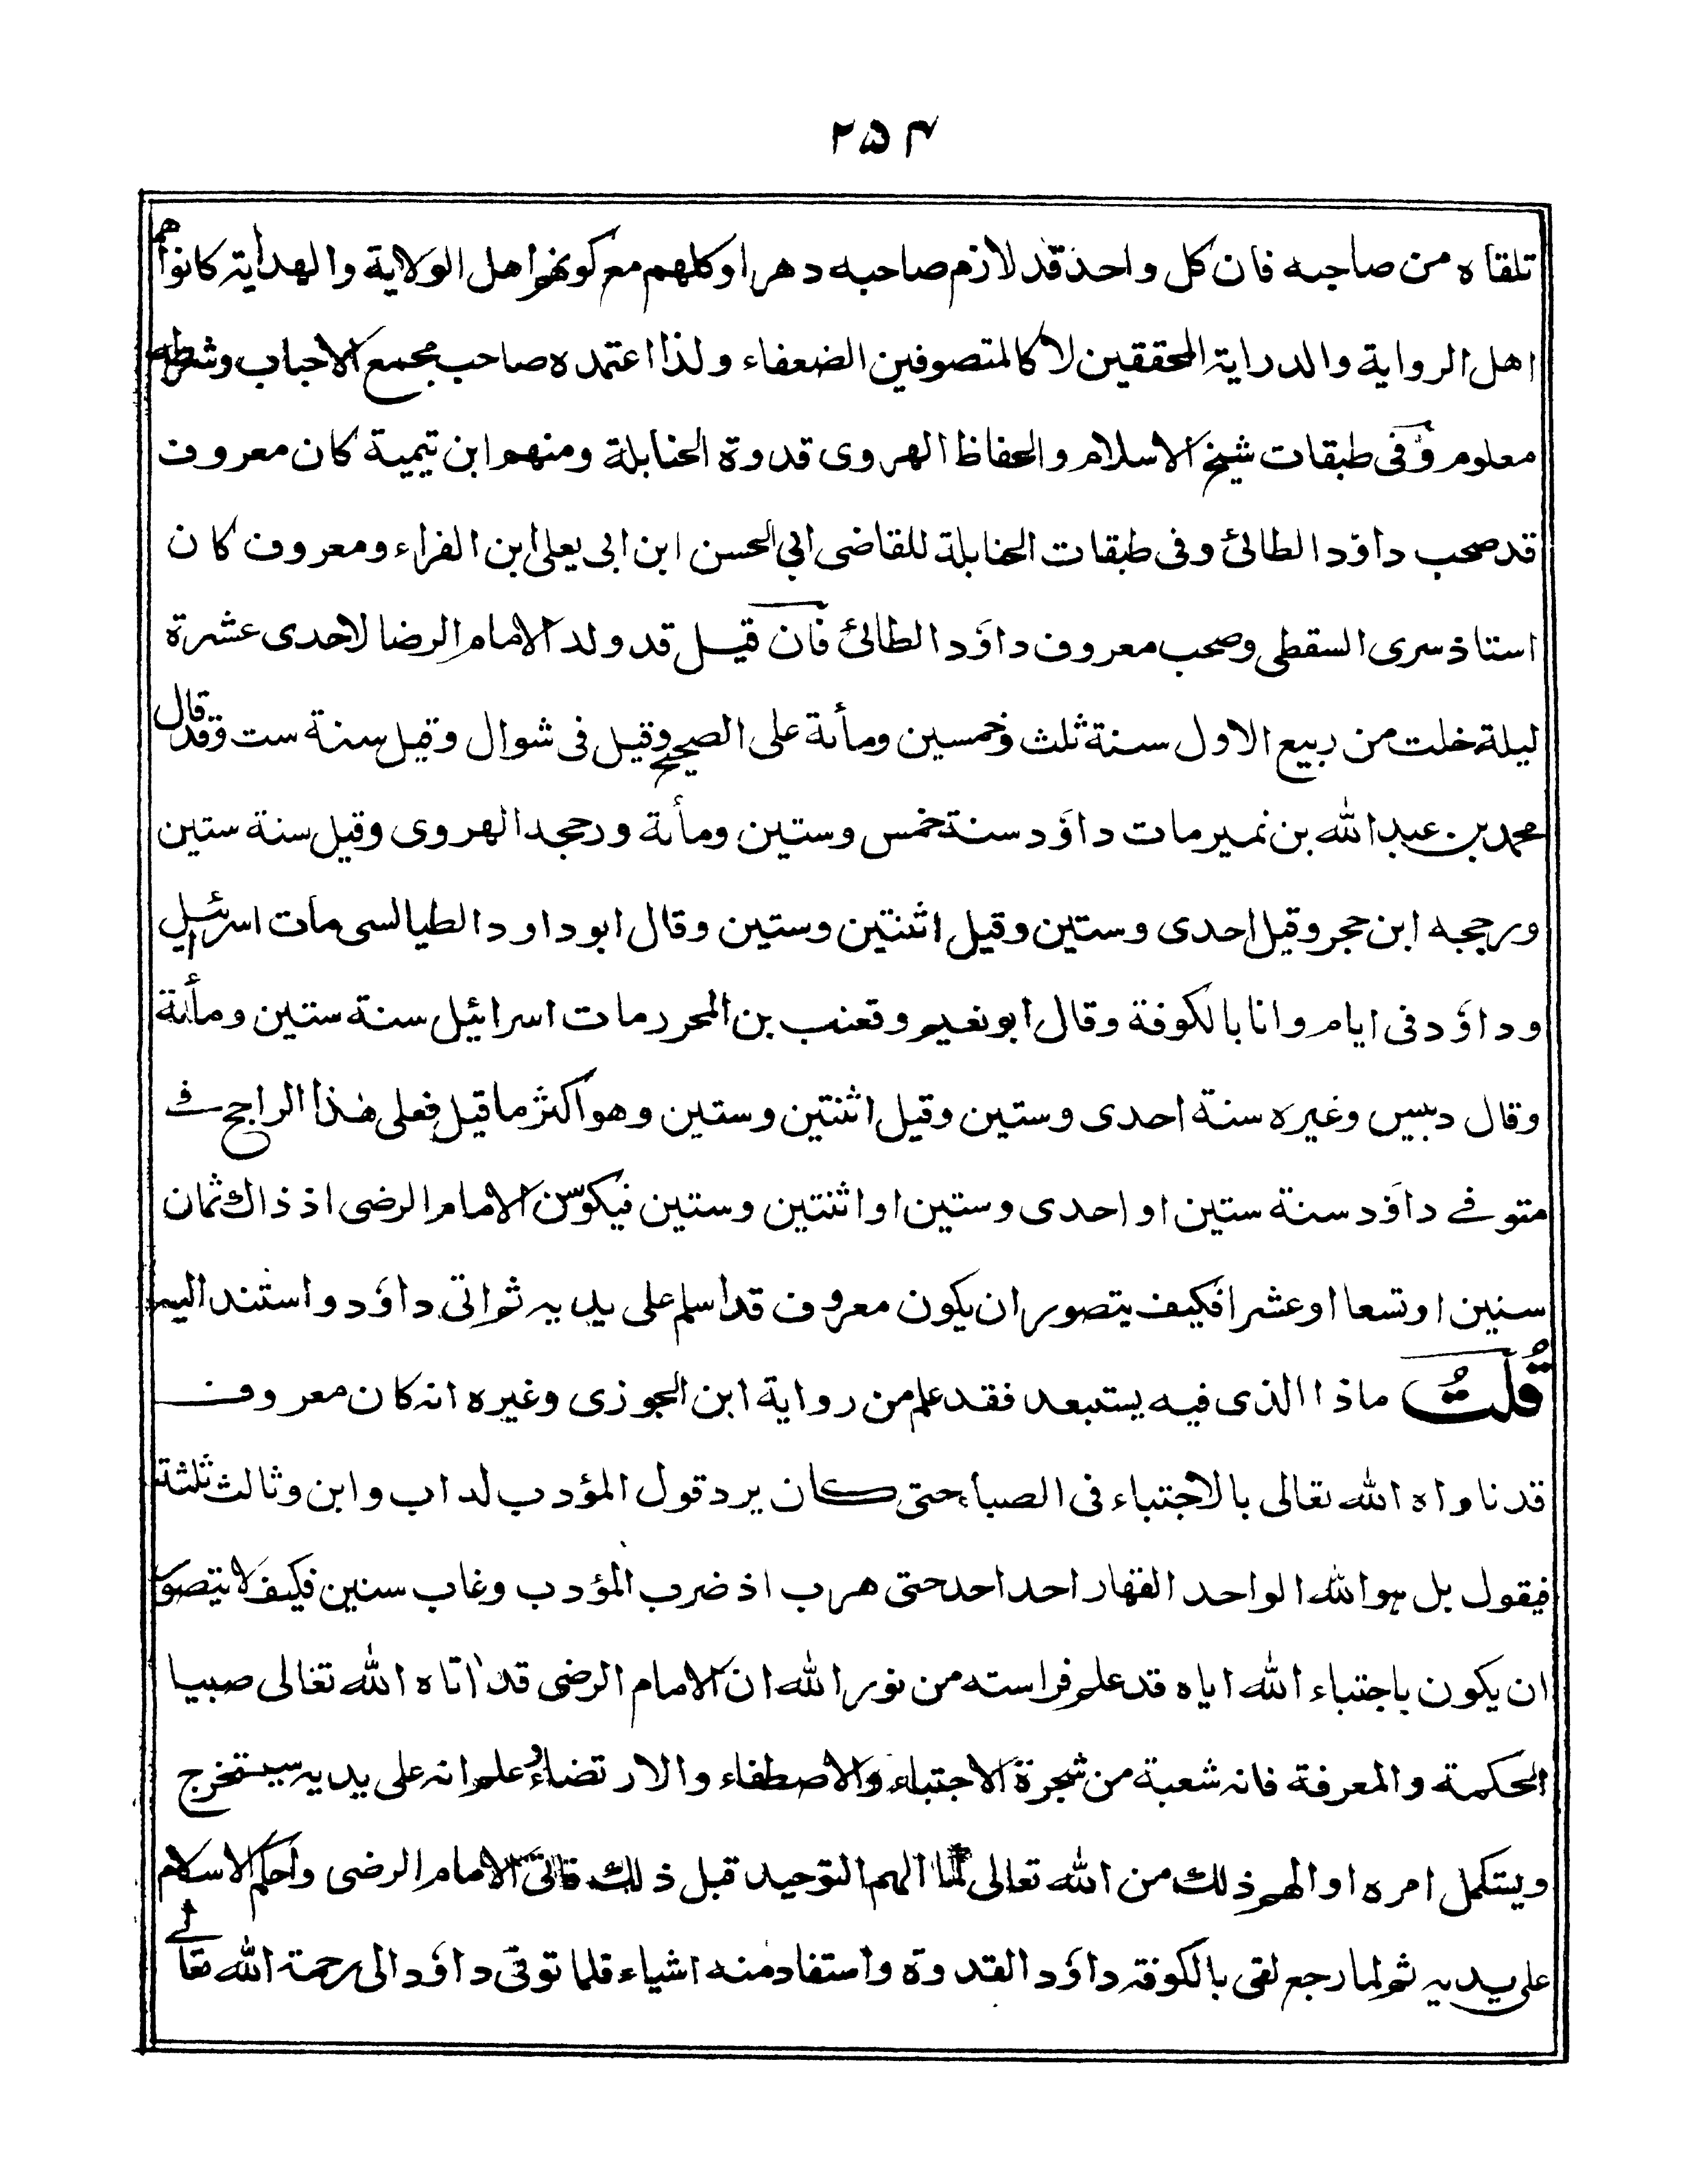 ٢٥٤
تلقاه من صاحبه فان كل واحد قد لازم صاحبه دهرا وكلهم مع كونهم اهل الولاية والهداية كانوا هم
اهل الرواية والدراية المحققين لا كالمتصوفين الضعفاء ولذا اعتمده صاحب مجمع الاحباب وشرطه
معلوم وفى طبقات شيخ الاسلام والحفاظ الهروى قدوة الحنابلة ومنهم ابن تيمية كان معروف
قد صحب داؤد الطائئ وفى طبقات الحنابلة للقاضى ابي الحسن ابن ابى يعلى ابن الفراء ومعروف كان
استاذ سرى السقطى وصحب معروف داؤد الطائئ فان قيل قد ولد الامام الرضا لاحدى عشرة
ليلة خلت من ربيع الاول سنة ثلث وخمسين ومأئة على الصحيح وقيل فى شوال وقيل سنة ست وقد قال
محمد بن عبد الله بن نمير مات داؤد سنة خمس وستين ومأئة ورجحه الهروى وقيل سنة ستين
ورجحه ابن حجر وقيل احدى وستين وقيل اثنتين وستين وقال ابو داود الطيالسى مات اسرائيل
وداؤد فى ايام وانا بالكوفة وقال ابو نعيم وقعنب بن المحرر مات اسرائيل سنة ستين ومأئة
وقال دبيس وغيره سنة احدى وستين وقيل اثنتين وستين وهو اكثر ما قيل فعلى هذا الراجح فى
متوفے داؤد سنة ستين او احدى وستين او اثنتين وستين فيكون سن الامام الرضى اذ ذاك ثمان
سنين او تسعا او عشرا فكيف يتصور ان يكون معروف قد اسلم على يديه ثم اتى داؤد واستند اليه
قُلتُ ماذا الذى فيه يستبعد فقد علم من رواية ابن الجوزى وغيره انه كان معروف
قد ناداه الله تعالى بالاجتباء فى الصبا حتى كان يرد قول المؤدب له اب وابن وثالث ثلثة
فيقول بل هو الله الواحد القهار احد احد حتى هرب اذ ضرب المؤدب وغاب سنين فكيف لا يتصور
ان يكون باجتباء الله اياه قد علم فراسته من نور الله ان الامام الرضى قد اتاه الله تعالى صبيا
الحكمة والمعرفة فانه شعبة من شجرة الاجتباء والاصطفاء والارتضاء وعلم انه على يديه سيستخرج
ويستكمل امره او الهم ذلك من الله تعالى كما الهم التوحيد قبل ذلك فاتى الامام الرضى واحكم الاسلام
على يديه ثم لما رجع لقى بالكوفة داؤد القدوة واستفاد منه اشياء فلما توفى داؤد الى رحمة الله تعالے